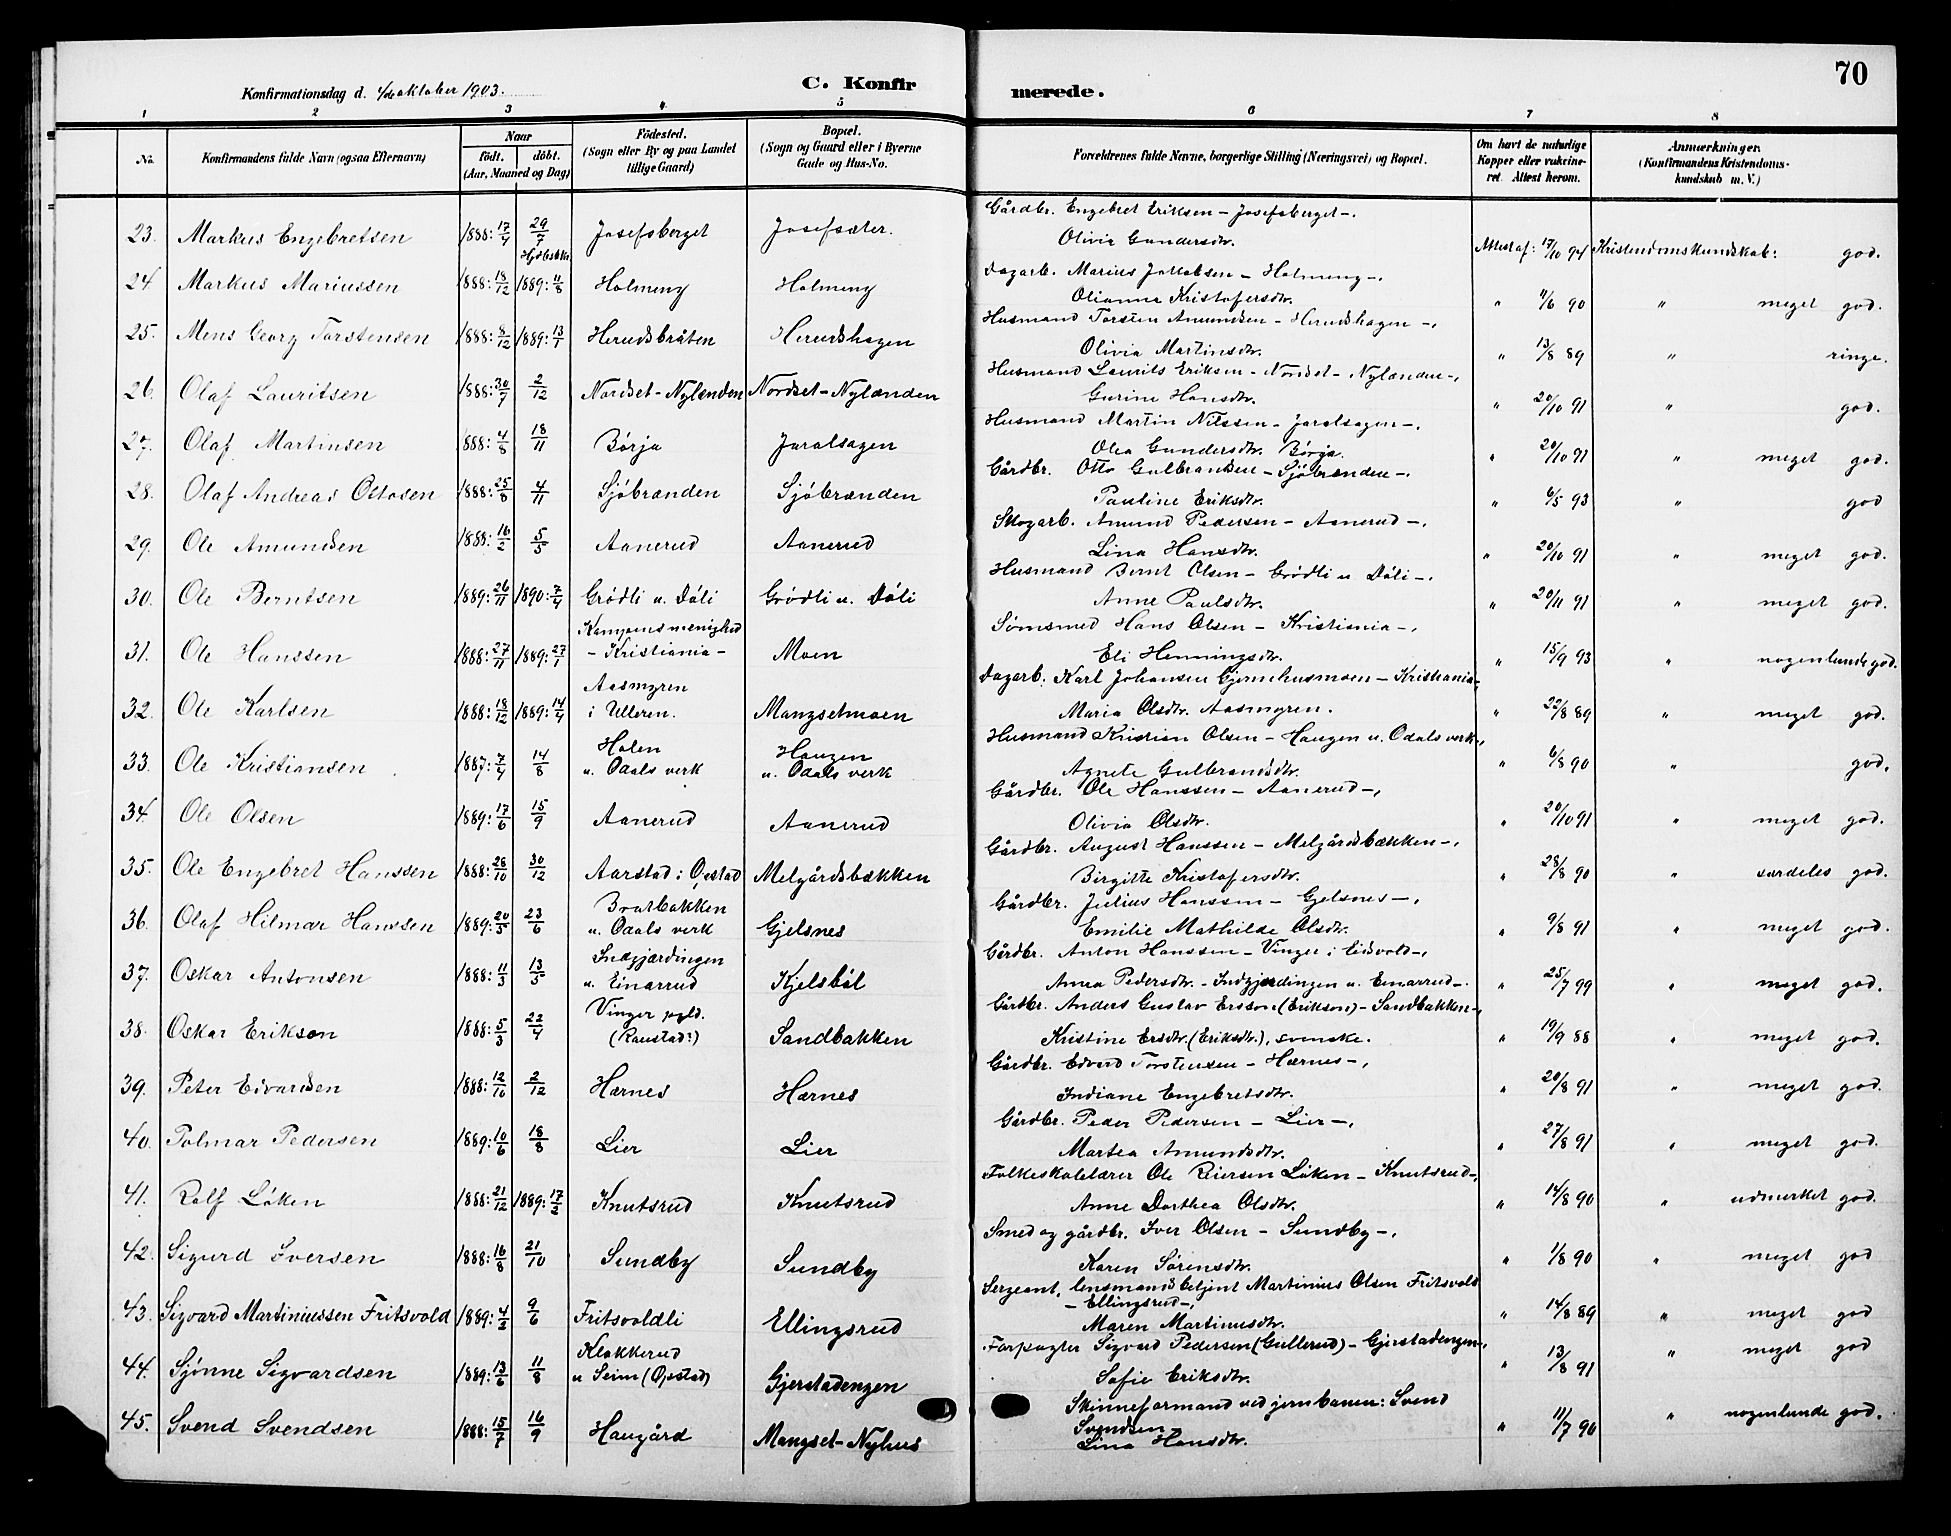 70
Konfirmationsdag d. 4/10 oktober 1903.
C. Konfirmerede.
1 2 3 4 5 6 7 8
No. Konfirmandens fulde Navn (ogsaa Efternavn) Naar født. døbt. (Aar, Maaned og Dag) Fødested. (Sogn eller By og paa Landet tillige Gaard) Bopæl. (Sogn og Gaard eller i Byerne Gade og Hus-No. Forældrenes fulde Navne, borgerlige Stilling (Næringsvei) og Bopæl. Om havt de naturlige Kopper eller vaksineret. Attest herom. Anmærkninger. (Konfirmandens Kristendomskundskab m. V.)
Gårdbr. Engebret Eriksen – Josefsberget –,
23. Markus Engebretsen 1888: 17/4 29/7 Hjebskk. Josefsberget Josefsæter. Olivia Gundersdtr. Attest af: 17/10 94 Kristendomskundskab: god.
Dagarb. Marius Jakobsen – Holmeng –,
24 Markus Mariussen 1888: 18/12 1889: 11/8 Holmeng Holmeng Olianna Kristofersdtr. " 11/6 90 " meget god.
Husmand Torsten Amundsen – Herudshagen –,
25. Mens Georg Torstensen 1888: 8/12 1889: 13/1 Herudsbråten Herudshagen Olivia Martinsdtr. " 13/8 89 " ringe.
Husmand Laurits Eriksen – Nordset – Nylænden –,
26. Olaf Lauritsen 1888: 30/7 2/12 Nordset – Nylænden Nordset – Nylænden Gurine Hansdtr. " 20/10 91 " god.
Husmand Martin Nilssen – Jaralsagen –,
27. Olaf Martinsen 1888: 4/8 18/11 Børja Jaralsagen Olea Gundersdtr. Børja. " 20/10 91 " meget god.
Gårdbr. Otto Gulbrandsen – Sjøbrænden –,
28. Olaf Andreas Ottosen 1888: 25/8 4/11 Sjøbrænden Sjøbrænden Pauline Eriksdtr. " 6/5 93 " god
Skogarb. Amund Pedersen – Aanerud –,
29. Ole Amundsen 1888: 16/2 5/5 Aanerud Aanerud Lina Hansdtr. " 20/10 91 " meget god.
Husmand Bernt Olsen – Grødli u. Døli –,
30. Ole Berntsen 1889: 26/11 1890: 7/4 Grødli u. Døli Grødli u. Døli Anne Paulsdtr. " 20/11 91 " meget god.
Kampens menighed Sømsmed Hans Olsen – Kristiania –,
31. Ole Hanssen 1888: 27/11 1889: 27/1 – Kristiania – Moen Eli Henningsdtr. " 15/9 93 " nogenlunde god.
Aasmyren Dagarb. Karl Johansen Gjernehusmoen – Kristiania –,
32. Ole Karlsen 1888: 18/12 1889: 14/4 i Ulleren. Mangsetmoen Maria Olsdtr. Aasmyren. " 22/8 89 " meget god.
Holen Haugen Husmand Kristian Olsen – Haugen u. Odals verk –,
33. Ole Kristiansen 1887: 7/4 14/8 u. Odals verk u. Odals verk Agnete Gulbrandsdtr. " 6/8 90 " god.
Gårdbr. Ole Hanssen – Aanerud –,
34. Ole Olsen 1889: 17/6 15/9 Aanerud Aanerud Olivia Olsdtr. " 20/10 91 " meget god.
Gårdbr. August Hanssen – Melgårdsbækken –,
35. Ole Engebret Hanssen 1888: 28/10 30/12 Aarstad i Opstad Melgårdsbækken Birgitte Kristofersdtr. " 28/8 90 " særdeles god.
Bratbakken Gårdbr. Julius Hanssen – Gjelsnes –,
36. Olaf Hilmar Hanssen 1889: 20/5 23/6 u. Odals verk Gjelsnes Emilie Mathilde Olsdtr. " 9/8 91 " meget god.
Indgjærdingen Gårdbr. Anton Hanssen – Vinger i Eidsvold –,
37. Oskar Antonsen 1888: 11/3 13/5 u. Einarrud Kjelsbøl Anna Pedersdtr. – Indgjærdingen u. Einarrud –. " 25/7 99 " meget god.
Vinger pgld. Gårdbr. Anders Gustav Ersson (Erikson) – Sandbakken –,
38. Oskar Erikson 1888: 5/3 22/4 (Raustad?) Sandbakken Kristine Ersdtr. (Eriksdtr.), svenske. " 19/9 88 " meget god.
Gårdbr. Edvard Torstensen – Hærnes –,
39. Peter Edvardsen 1888: 12/10 2/12 Hærnes Hærnes Indiane Engebretsdtr. " 20/8 91 " meget god.
Gårdbr. Peder Pedersen – Lier –,
40. Polmar Pedersen 1889: 10/6 18/8 Lier Lier Martea Amundsdtr. " 27/8 91 " meget god.
Folkeskolelærer Ole Reiersen Løken – Knutsrud –,
41. Rolf Løken 1888: 21/12 1889: 17/2 Knutsrud Knutsrud Anne Dorthea Olsdtr. " 14/8 90 " udmerket god.
Smed og gårdbr. Iver Olsen – Sundby –,
42. Sigurd Iversen 1888: 16/8 21/10 Sundby Sundby Karen Sørensdtr. " 1/8 90 " meget god
Sergeant, lensmandsbetjent Martinius Olsen Fritsvold
– Ellingsrud –,
43. Sigvard Martiniussen Fritsvold 1889: 4/2 9/6 Fritsvoldli Ellingsrud Maren Martinusdtr. " 14/8 89 " meget god
Klakkerud Forpagter Sigvard Pedersen (Gullerud) – Gjerstadengen –,
44. Sjønne Sigvardsen 1889: 13/6 11/8 u Seim (Opstad) Gjerstadengen Sofie Eriksdtr. " 13/8 91 " meget god
Skinneformand ved jernbanen: Svend
45. Svend Svendsen 1888: 15/7 16/9 Haugård Mangset – Nyhus Svendsen " 11/7 90 " nogenlunde god.
Lina Hansdtr.